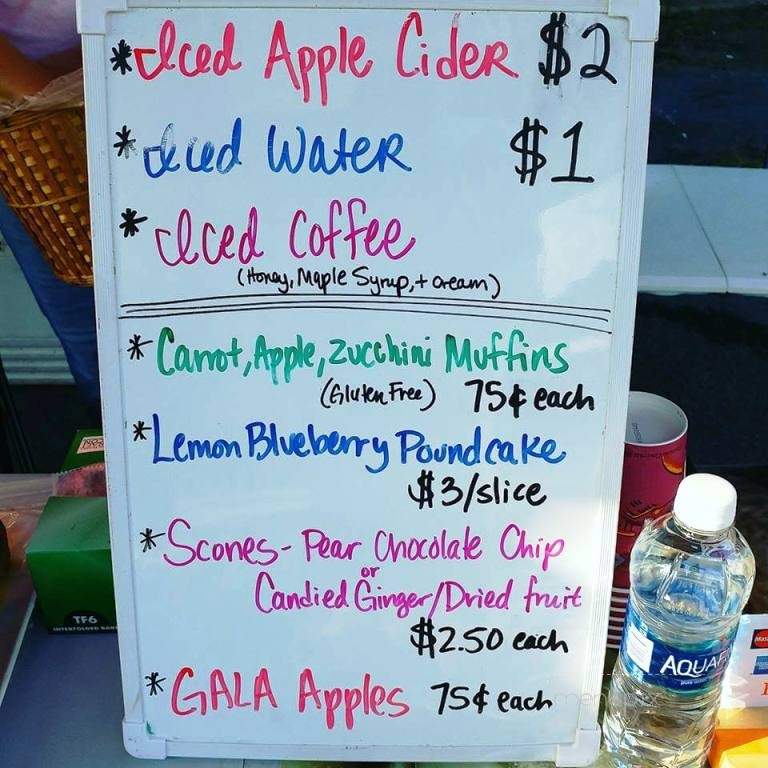 *Iced Apple Cider $2
*Iced Water $1
*Iced Coffee
(Honey, Maple Syrup, + cream)
*Carrot, Apple, Zucchini Muffins
(Gluten Free) 75¢ each
*Lemon Blueberry Poundcake
$3/slice
*Scones - Pear Chocolate Chip
or
Candied Ginger/Dried fruit
$2.50 each
*GALA Apples 75¢ each
TF6
INTERFOLDED
AQUAF